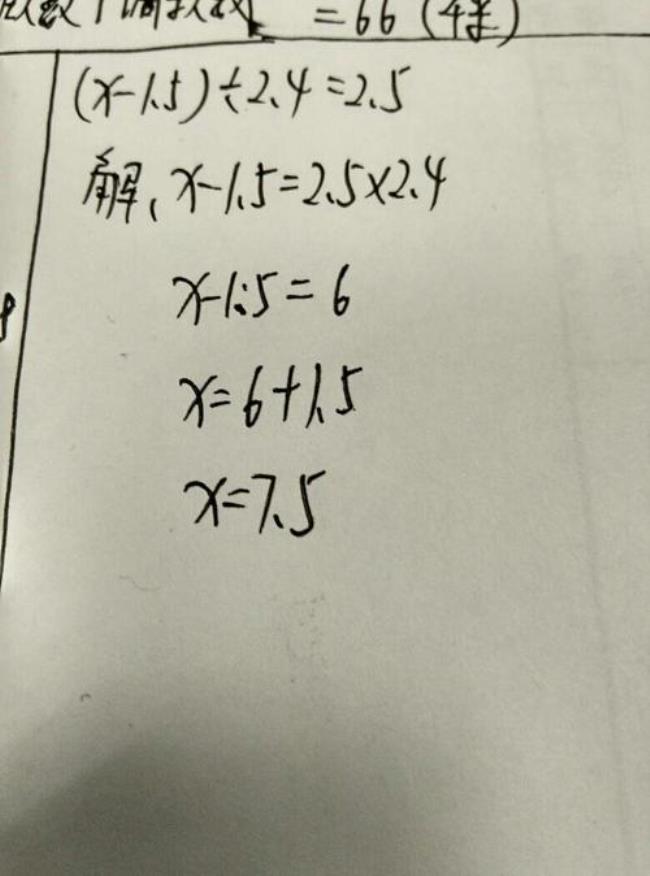 =66(样)
(x-1.5)÷2.4=2.5
解、x-1.5=2.5×2.4
x-1.5=6
x=6+1.5
x=7.5